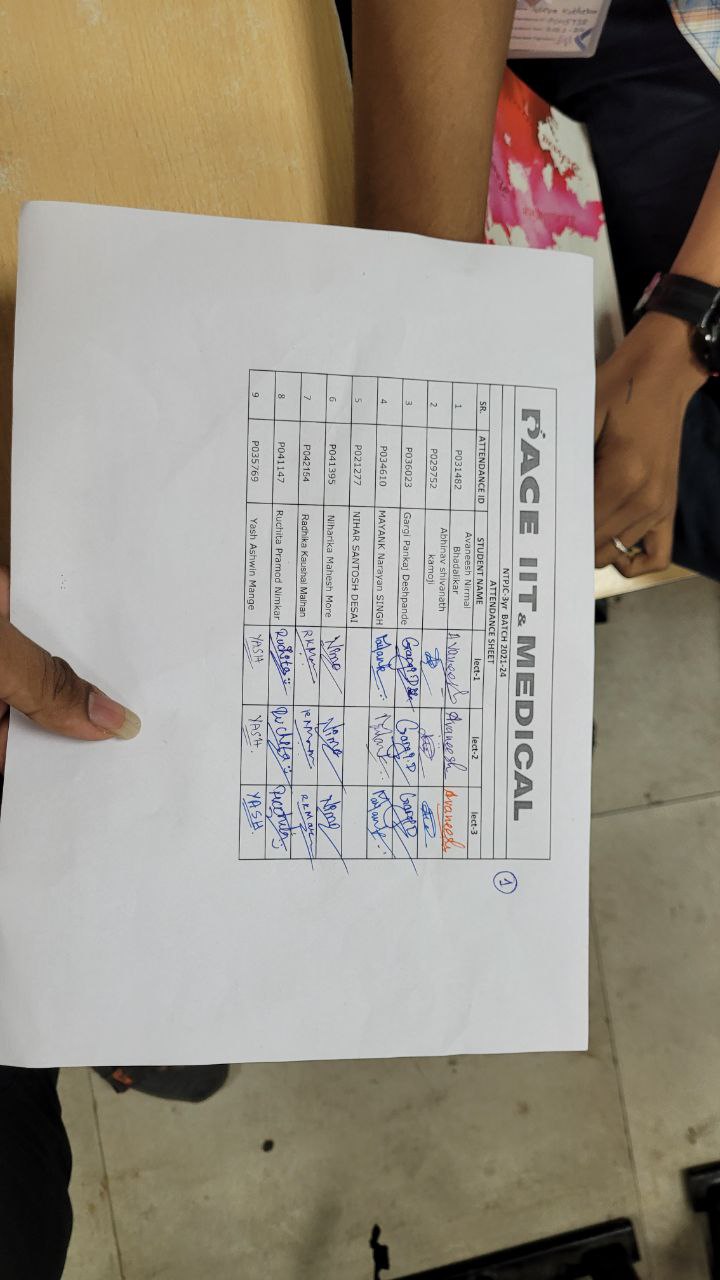 PACE IIT & MEDICAL
NTPJC-3yr BATCH 2021-24
ATTENDANCE SHEET
SR. ATTENDANCE ID STUDENT NAME lect-1 lect-2 lect-3
1 P031482 Avaneesh Nirmal Bhadalikar Avaneesh Avaneesh Avaneesh
2 P029752 Abhinav shivanath kamoji
3 P036023 Gargi Pankaj Deshpande Gargi.D Gargi.D Gargi D
4 P034610 MAYANK Narayan SINGH Mayank Mayank Mayank
5 P021277 NIHAR SANTOSH DESAI
6 P041395 Niharika Mahesh More
7 P042154 Radhika Kaushal Malhan
8 P041147 Ruchita Pramod Nimkar Ruchita Ruchita Ruchita
9 P035769 Yash Ashwin Mange YASH YASH. YASH.
1